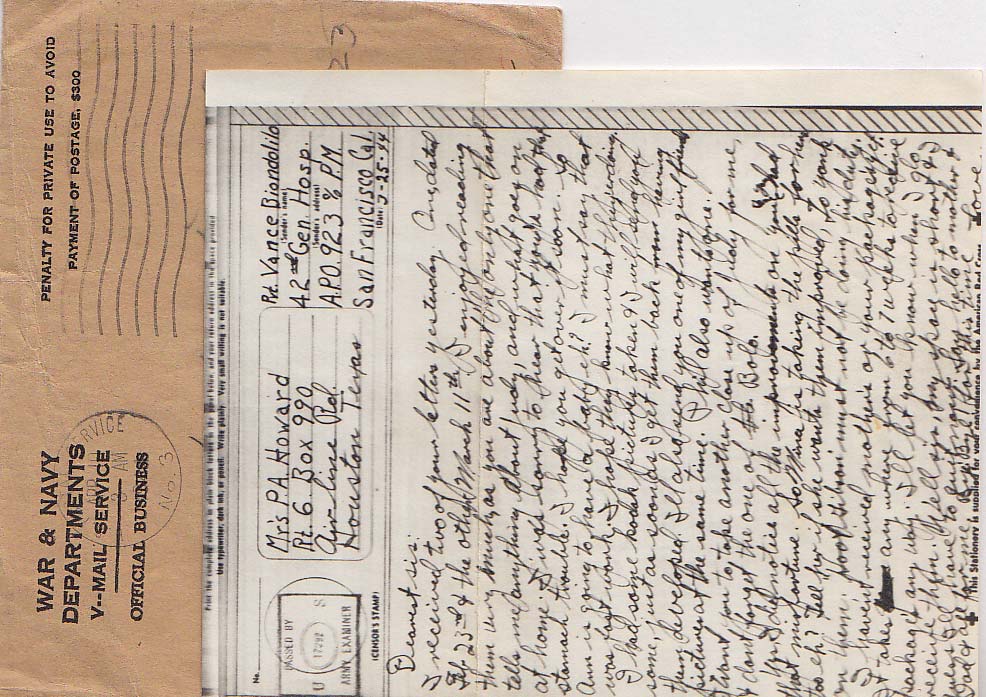 PENALTY FOR PRIVATE USE TO AVOID
PAYMENT OF POSTAGE, $300
WAR & NAVY
DEPARTMENTS
V--MAIL SERVICE
OFFICIAL BUSINESS
No. 3
23
Print the complete address in plain block letters in the panel below, and your return address in the space provided
Use typewriter, dark ink, or pencil. Write plainly. Very small writing is not suitable.
No.
PASSED BY
U S
17292
ARMY EXAMINER
(CENSOR'S STAMP)
Mrs P.A. Howard
Rt. 6 Box 990
Air-Line Rd.
Houston Texas
Pvt. Vance Biondolilo
(Sender's name)
42nd Gen Hosp.
(Sender's address)
A.P.O. 923 % P.M
San Francisco Cal.
(Date) 3-25-44
Dearest sis:
I received two of your letters yesterday. One dated
Feb 23rd & the other March 11th. I enjoyed reading
them very much, as you are about the only one that
tells me anything about Judy and what goes on
at home. I was sorry to hear that you've had the
stomach trouble. I hope you get over it soon. So
Ann is going to have a baby eh? I must say that
was fast work. I hope they know what they're doing.
I had some pictures taken & I will send you
some, just as soon as I get them back from having
them developed. I'll also send you one of my girlfriend
picture at the same time. Phil also wants one.
I want you to take another close up of Judy for me,
& don't forget the one of the Bolo.
that misfortune so Alma is taking the pills for her
too eh? Tell her if she wants them improved to work
on them. must not be doing his duty.
I haven't received mother's or your package yet.
It takes any where from 6 to 7 weeks to receive
packages any day. I'll let you know when I do
receive them. Well sis my space is short & I
guess I'll have to quit now. Say hello to mother &
dad & all for me. for this time
Love
This Stationery is supplied for your convenience by the American Red Cross